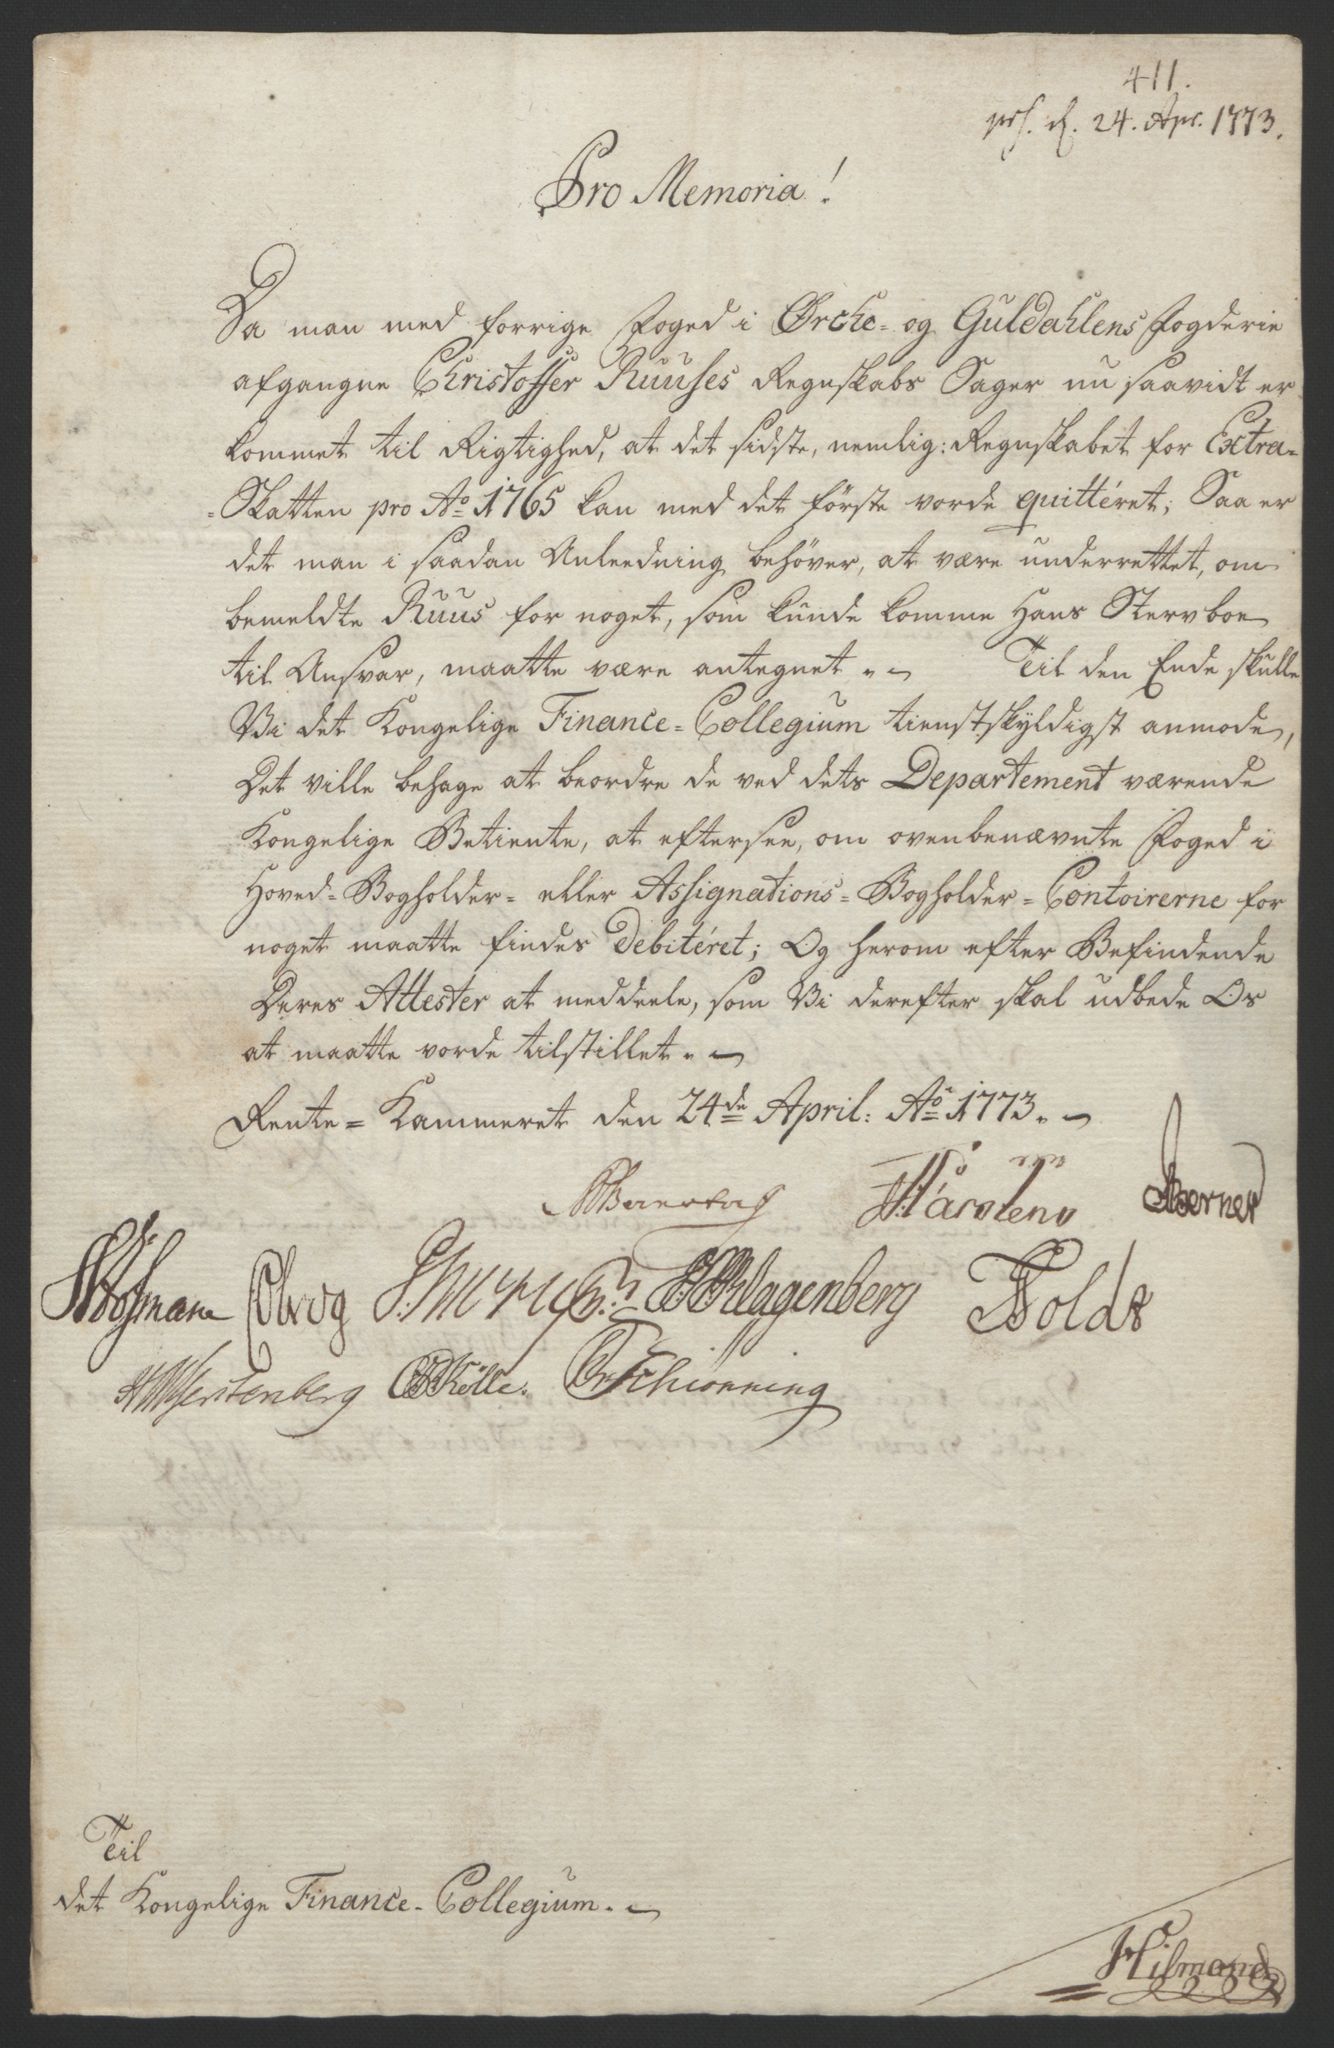 411.
prs. d. 24. Apr. 1773.
Pro Memoria!
Da man med forrige Foged i Ørche- og Guldahlens Fogderie
afgangne Christoffer Ruuses Regnskabs Sager nu saavidt er
kommet til Rigtighed, at det sidste, nemlig: Regnskabet for Extra-
-Skatten pro Ao 1765 kan med det förste vorde quittéret; Saa er
det man i saadan Anleedning behöver, at være underrettet, om
bemeldte Ruus for noget, som kunde komme Hans Stervboe
til Ansvar, maatte være antegnet.~ Til den Ende skulle
Vi det Kongelige Finance-Collegium tienstskyldigst anmode,
Det ville behage at beordre de ved dets Departement værende
Kongelige Betiente, at eftersee, om ovenbenævnte Foged i
Hoved-Bogholder- eller Assignations-Bogholder-Contoirerne for
noget maatte findes Debitéret; Og herom efter Befindende
Deres Attester at meddeele, som Vi derefter skal udbede Os
at maatte vorde tilstillet.~
Rente-Kammeret den 24de April: Ao 1773.~
Klagenberg Holdt
Schiönning
Til
det Kongelige Finance-Collegium.~